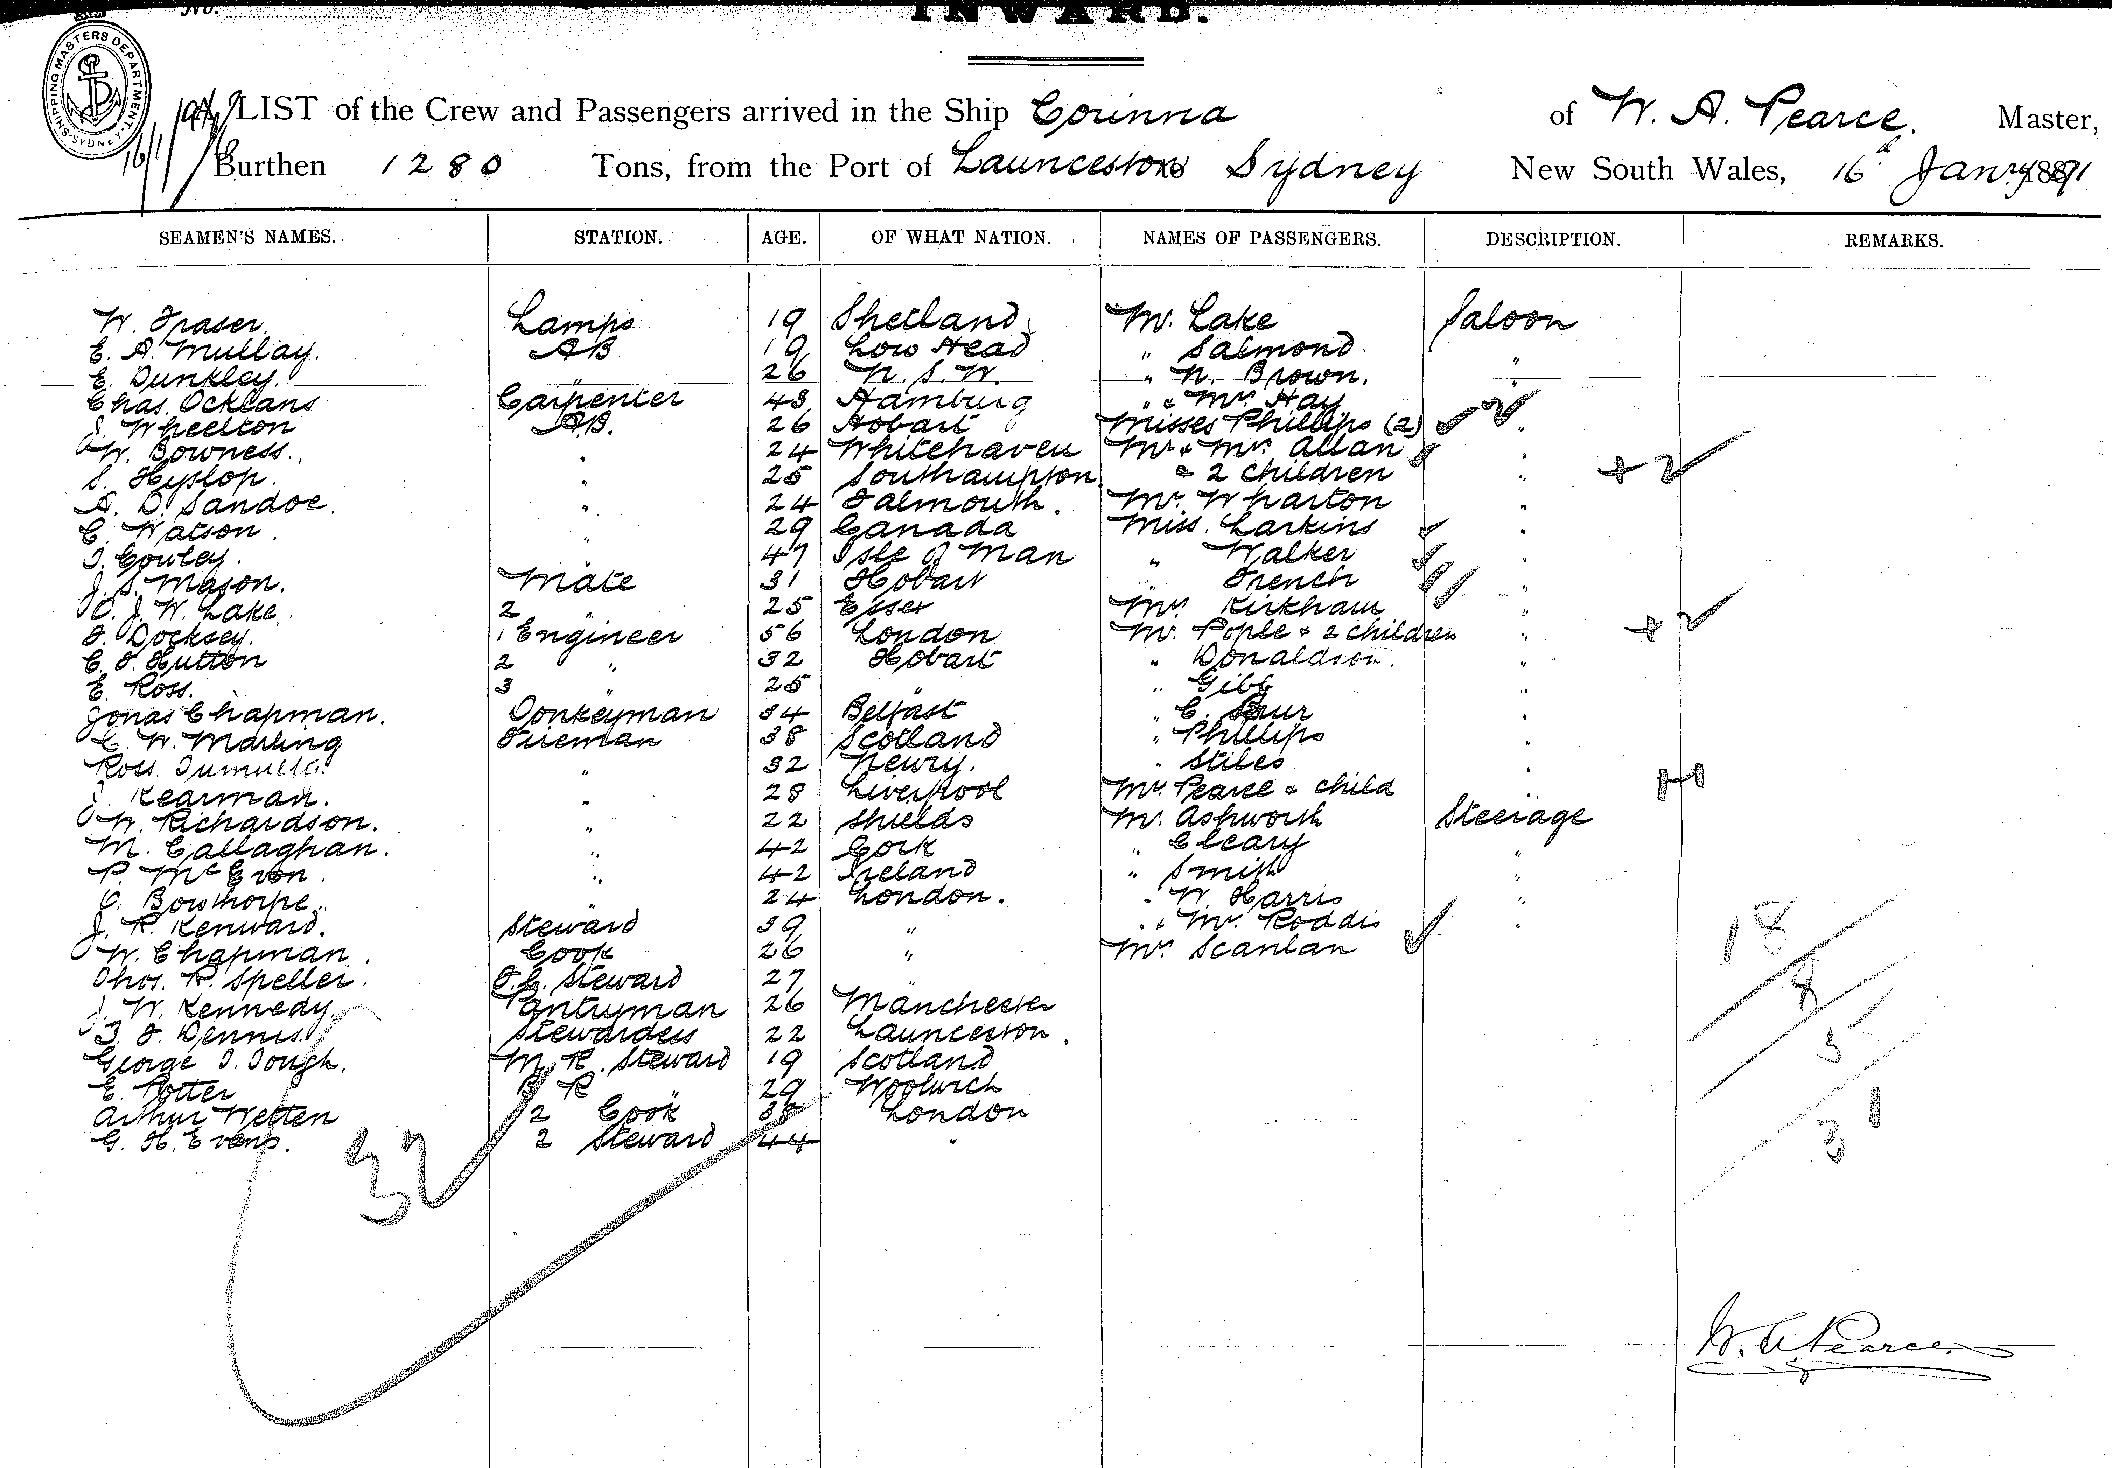 No.
INWARD.
SHIPPING MASTERS DEPARTMENT. SYDNEY
16/1/91 LIST of the Crew and Passengers arrived in the Ship Corinna of W. A. Pearce. Master,
Burthen 1280 Tons, from the Port of Launceston Sydney New South Wales, 16th Jany 1891
SEAMEN'S NAMES. STATION. AGE. OF WHAT NATION. NAMES OF PASSENGERS. DESCRIPTION. REMARKS.
W. Fraser. Lamps 19 Shetland. Mr. Lake Saloon
E. A. Mullay. AB 19 Low Head " Salmond. "
E. Dunkley. " 26 N. S. W. " N. Brown. "
Chas. Ocklans Carpenter 43 Hamburg " & Mrs Hay
J. Wheelton AB. 26 Hobart Misses Phillips (2) 2 "
W. Bowness. " 24 Whitehaven Mr & Mrs Allan "
S. Hyslop. " 25 Southampton & 2 children " + 2
A. D. Sandoe. " 24 Falmouth. Mr. Wharton "
C. Watson. " 29 Canada Miss. Larkins "
T. Cowley. " 47 Isle of Man " Walker "
J. S. Mason. Mate 31 Hobart " French "
C. J. W. Lake. 2 " 25 Essex Mrs Kirkham "
F. Docksey. 1 Engineer 56 London Mr. Pople & 2 children " + 2
C. F. Hutton 2 " 32 Hobart " Donaldson. "
E. Ross. 3 " 25 " " Gibb "
Jonas Chapman. Donkeyman 34 Belfast " C. "
C. W. Marling Fireman 38 Scotland " Phillips "
Ross. " 32 Newry. " Stiles "
J. Kearman. " 28 Liverpool Mrs Pearce & child " +1
W. Richardson. " 22 Shields Mr. Ashworth Steerage
M. Callaghan. " 42 Cork " Cleary "
P. McEvon. " 42 Ireland " Smith "
C. Bowthorpe. " 24 London. " W. Harris "
J. R. Kenward. Steward 39 " " & Mrs Roddis " 18
W. Chapman. Cook 26 " Mrs Scanlan
Thos. R. Speller. F.C. Steward 27 " 8
J. W. Kennedy. Pantryman 26 Manchester
T. F. Dennis. Stewardess 22 Launceston. 5
George T. Tough. M. R. Steward 19 Scotland
E. Potter F R " 29 Woolwich
Arthur Wetten 2 Cook 38 London 31
G. H. Evans. 2 Steward 44 "
32
W. A. Pearce.